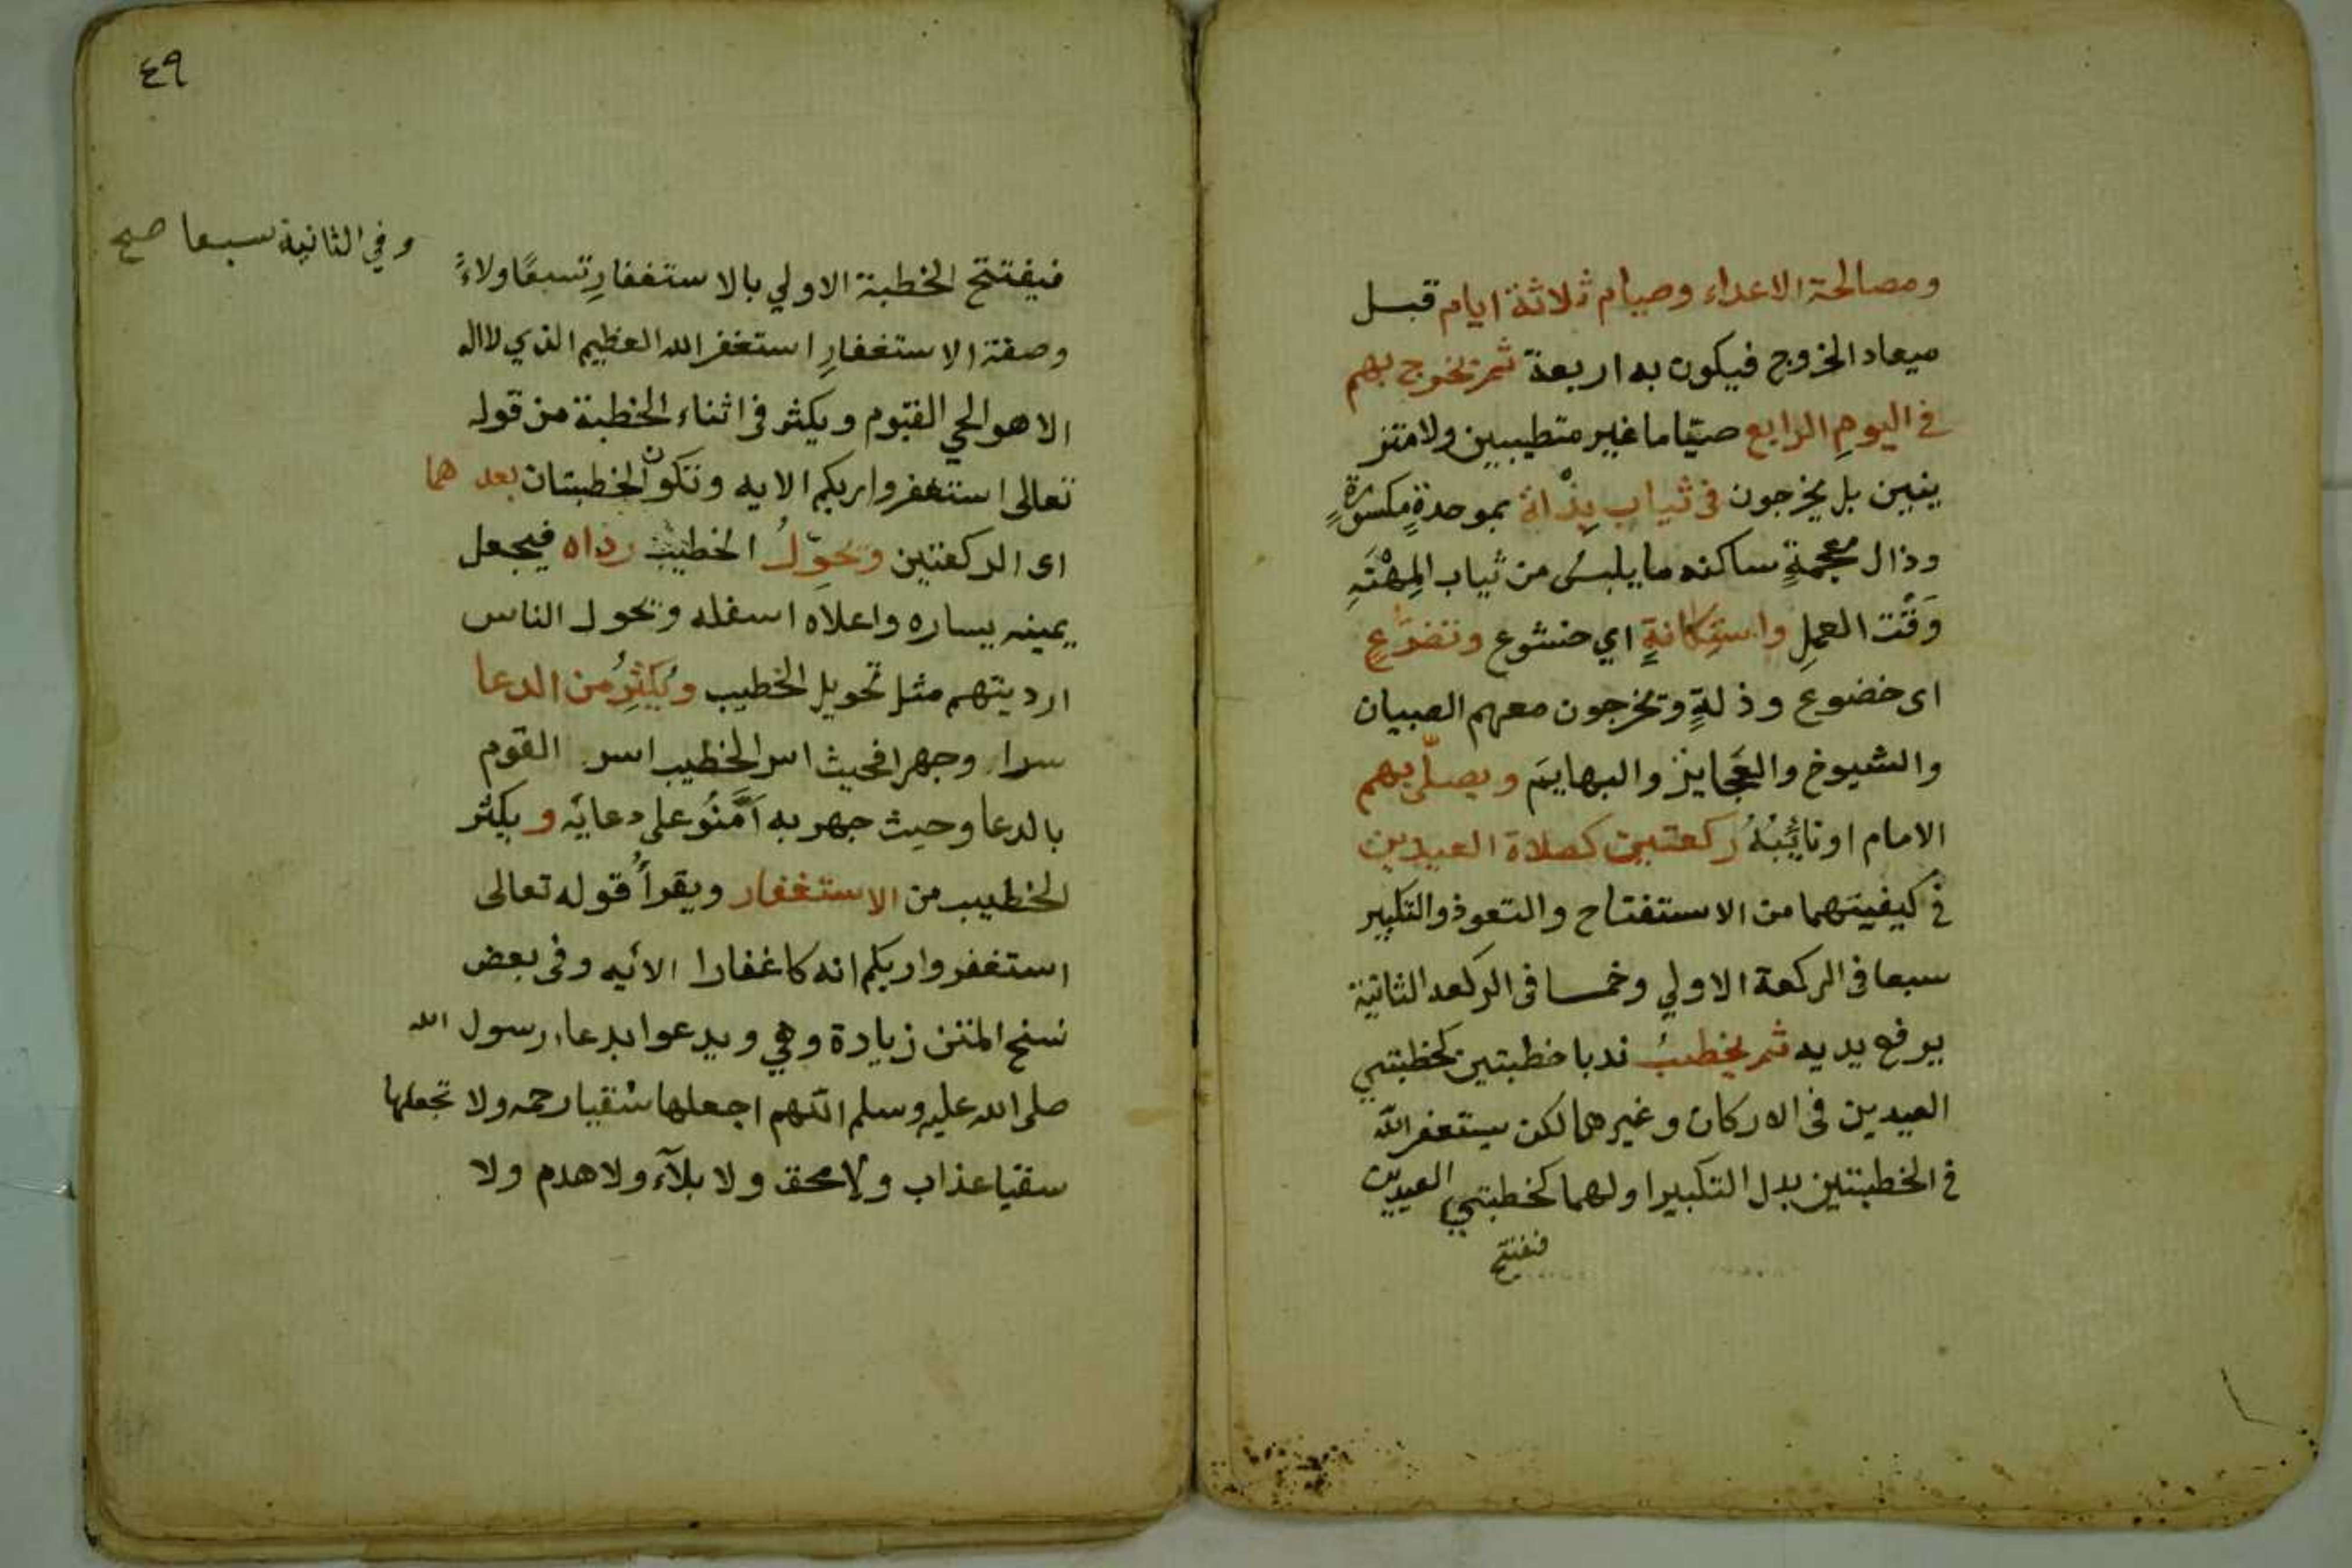 ومصالحة الاعداء وصيام ثلاثة ايام قبل
ميعاد الخروج فيكون به اربعة ثم يخرج بهم
في اليومِ الرابع صيّاما غير متطيبين ولا متز
ينين بل يخرجون في ثياب بِذْلة بموحدةٍ مكسورةٍ
وذال معجمةٍ ساكنه ما يلبس من ثياب المِهْنَهِ
وَقْت العملِ واستِكانةٍ اي خشوع وتضرّعٍ
اى خضوع وذلةٍ ويخرجون معهم الصبيان
والشيوخ والعَجايز والبهايمَ ويصلّى بهم
الامام او نائبُهُ ركعتين كصلاة العيدين
في كيفيتهما من الاستفتاح والتعوذ والتكبير
سبعا فى الركعة الاولي وخمسا فى الركعه الثانية
يرفع يديه ثم يخطبُ ندبا خطبتين كخطبتي
العيدين فى الاركان وغيرهما لكن يستغفر الله
في الخطبتين بدل التكبير اولهما كخطبتي العيدين
فيفتتح
٤٩
وفي الثانية سبعا صح
فيفتتح الخطبة الاولي بالاستغفارِ تسعًا ولاءً
وصفة الاستغفارِ استغفر الله العظيم الذي لااله
الا هو الحي القيّوم ويكثر فى اثناء الخطبة من قوله
تعالى استغفروا ربكم الايه وتكون الخطبتان بعدهما
اى الركعتين ويحوّلُ الخطيب رداه فيجعل
يمينه يساره واعلاه اسفله ويحول الناس
ارديتهم مثل تحويل الخطيب ويُكثِرُ من الدعا
سرا وجهرا فحيث اسر الخطيب اسر القوم
بالدعا وحيث جهر به اَمَّنُو على دعايه ويكثر
الخطيب من الاستغفار ويقرأُ قوله تعالى
استغفروا ربكم انه كا غفارا الايه وفى بعض
نسخ المتن زيادة وهي ويدعوا بدعاء رسول الله
صلى الله عليه وسلم اللهم اجعلها سُقيا رحمه ولا تجعلها
سقيا عذاب ولا محق ولا بلآء ولا هدم ولا